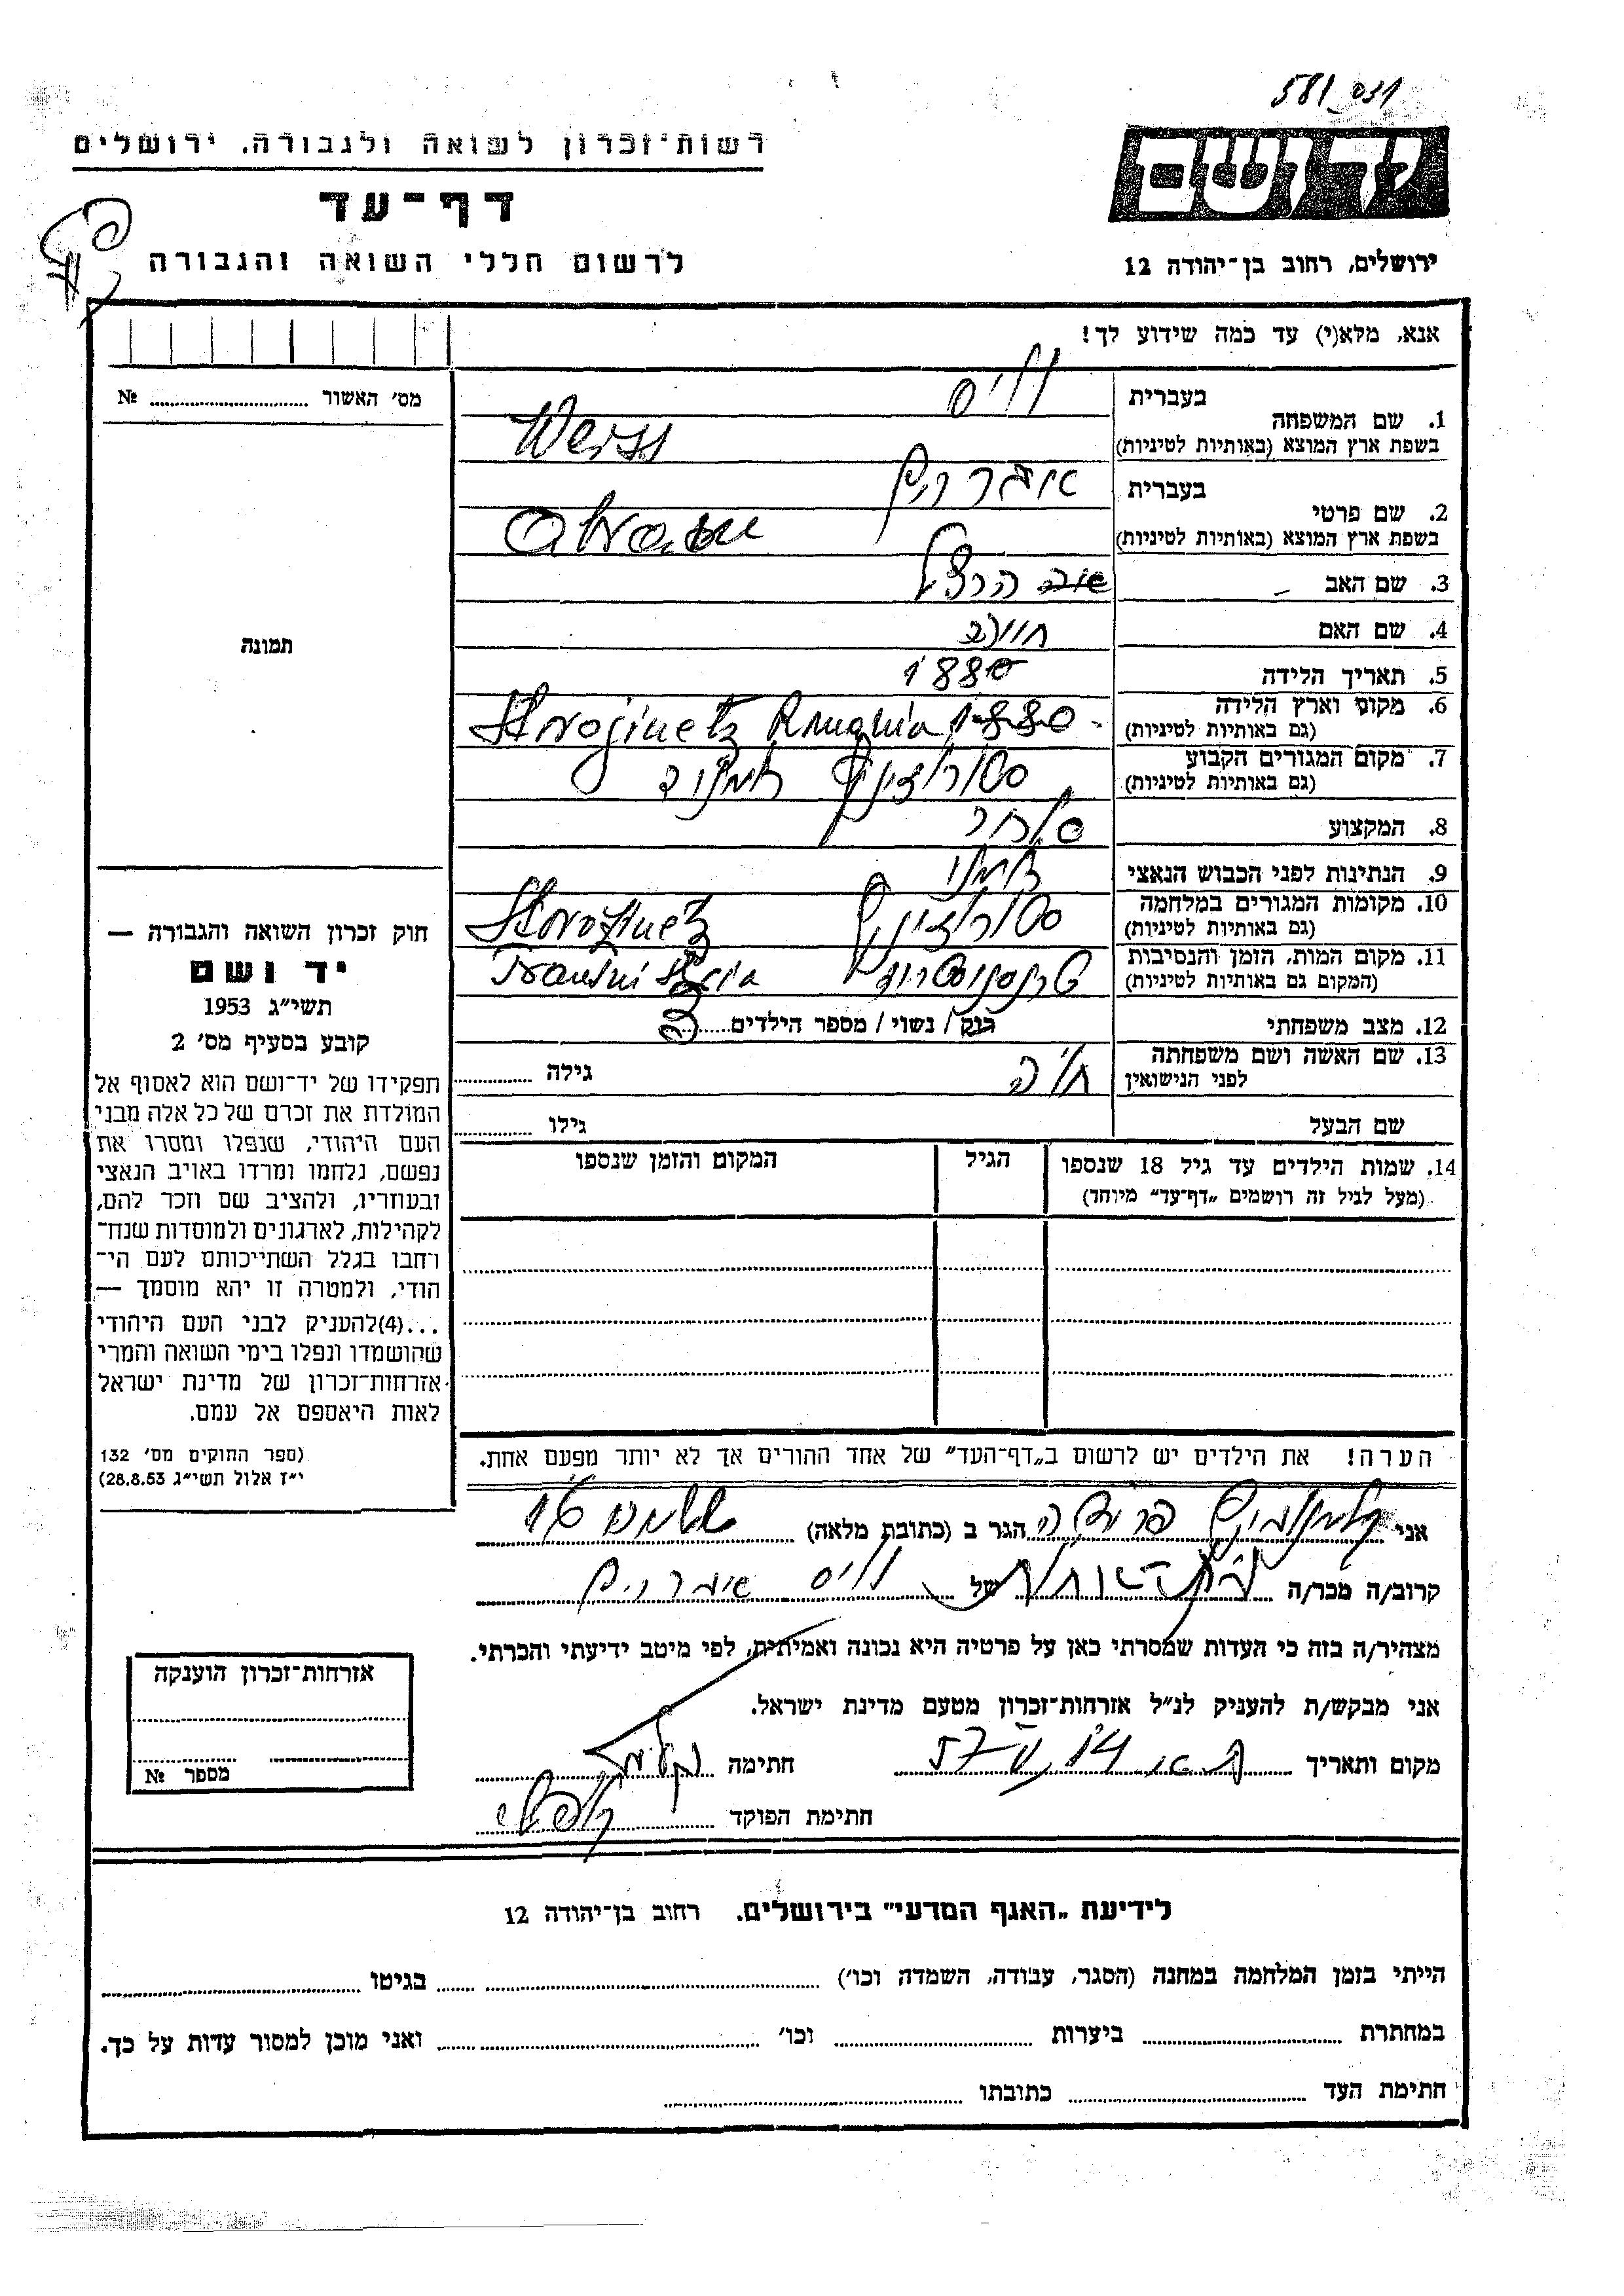 581 031
רשות־זכרון לשואה ולגבורה, ירושלים
יד ושם
דף־עד
לרשום חללי השואה והגבורה
ירושלים, רחוב בן־יהודה 12
אנא, מלא(י) עד כמה שידוע לך!
מס׳ האשור № 
1. שם המשפחה
בעברית וייס
בשפת ארץ המוצא (באותיות לטיניות) Weiss
2. שם פרטי
בעברית אברהם
בשפת ארץ המוצא (באותיות לטיניות)
3. שם האב הרצל
4. שם האם
5. תאריך הלידה 1880
6. מקום וארץ הלידה
(גם באותיות לטיניות) 1880
7. מקום המגורים הקבוע
(גם באותיות לטיניות)
8. המקצוע סוחר
9. הנתינות לפני הכבוש הנאצי
10. מקומות המגורים במלחמה
(גם באותיות לטיניות)
11. מקום המות, הזמן והנסיבות
(המקום גם באותיות לטיניות)
12. מצב משפחתי רוק / נשוי / מספר הילדים 3
13. שם האשה ושם משפחתה
לפני הנישואין חיה גילה
שם הבעל גילו
14. שמות הילדים עד גיל 18 שנספו הגיל המקום והזמן שנספו
(מעל לגיל זה רושמים „דף־עד״ מיוחד)
הערה! את הילדים יש לרשום ב„דף־העד״ של אחד ההורים אך לא יותר מפעם אחת.
אני פרידה הגר ב (כתובת מלאה)
קרוב/ה מכר/ה של וייס אברהם
מצהיר/ה בזה כי העדות שמסרתי כאן על פרטיה היא נכונה ואמיתית, לפי מיטב ידיעתי והכרתי.
אני מבקש/ת להעניק לנ״ל אזרחות־זכרון מטעם מדינת ישראל.
מקום ותאריך חתימה
חתימת הפוקד
תמונה
חוק זכרון השואה והגבורה —
יד ושם
תשי״ג 1953
קובע בסעיף מס׳ 2
תפקידו של יד־ושם הוא לאסוף אל
המולדת את זכרם של כל אלה מבני
העם היהודי, שנפלו ומסרו את
נפשם, נלחמו ומרדו באויב הנאצי
ובעוזריו, ולהציב שם וזכר להם,
לקהילות, לארגונים ולמוסדות שנח־
רחבו בגלל השתייכותם לעם הי־
הודי, ולמטרה זו יהא מוסמך —
...(4)להעניק לבני העם היהודי
שהושמדו ונפלו בימי השואה והמרי
אזרחות־זכרון של מדינת ישראל
לאות היאספם אל עמם.
(ספר החוקים מס׳ 132
י״ז אלול תשי״ג 28.8.53)
אזרחות־זכרון הוענקה
מספר №
לידיעת „האגף המדעי״ בירושלים. רחוב בן־יהודה 12
הייתי בזמן המלחמה במחנה (הסגר, עבודה, השמדה וכו׳) בגיטו
במחתרת ביערות וכו׳ ואני מוכן למסור עדות על כך.
חתימת העד כתובתו